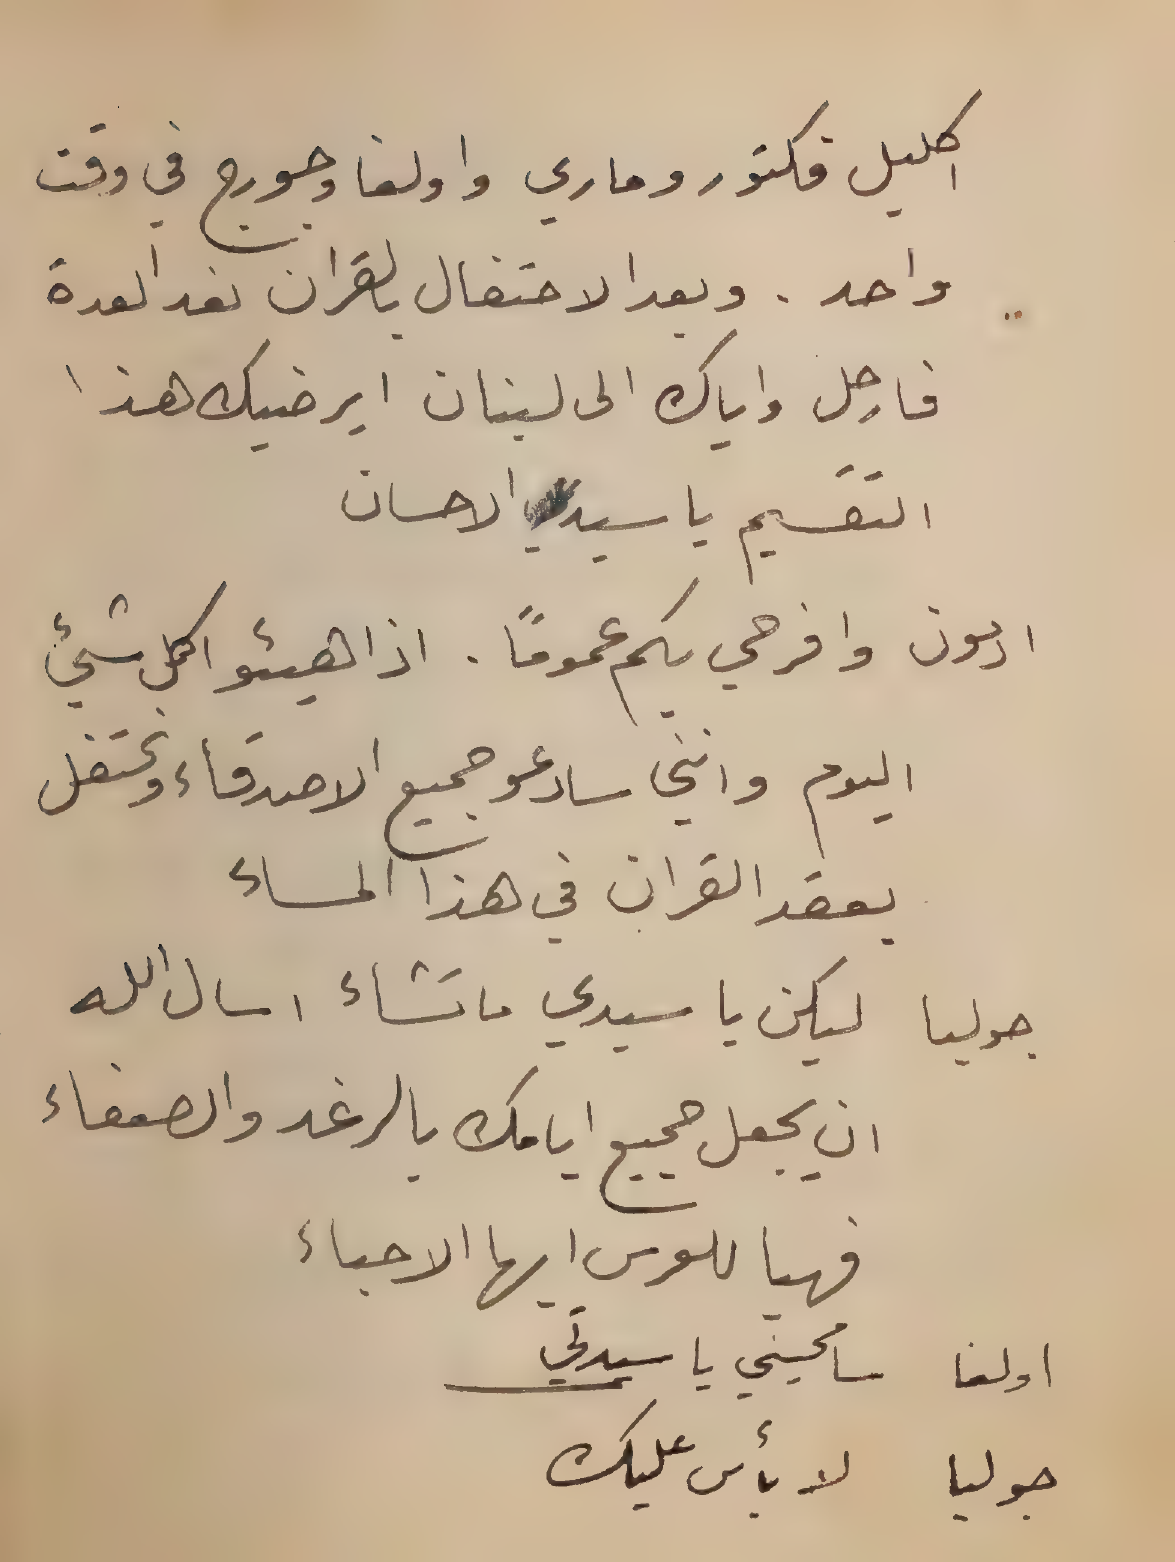 اكليل فكتور وماري واولغا وجورج في وقت
واحد . وبعد الاحتفال بالقران نعد العدة
فارحل واياك الى لبنان ايرضيك هذا
التقسيم يا سيدي الاحسان
ادمون وافرحي بكم عموماً . اذا هيئوا كل شيئ
اليوم وانني سادعو جميع الاصدقاء ونحتفل
بعقد القران في هذا المساء
جوليا ليكن يا سيدي ما تشاء اسال الله
ان يجعل جميع ايامك بالرغد والصفاء
فهيا للعرس ايها الاحباء
اولغا سامحيني يا سيدتي
جوليا لا بأس عليك